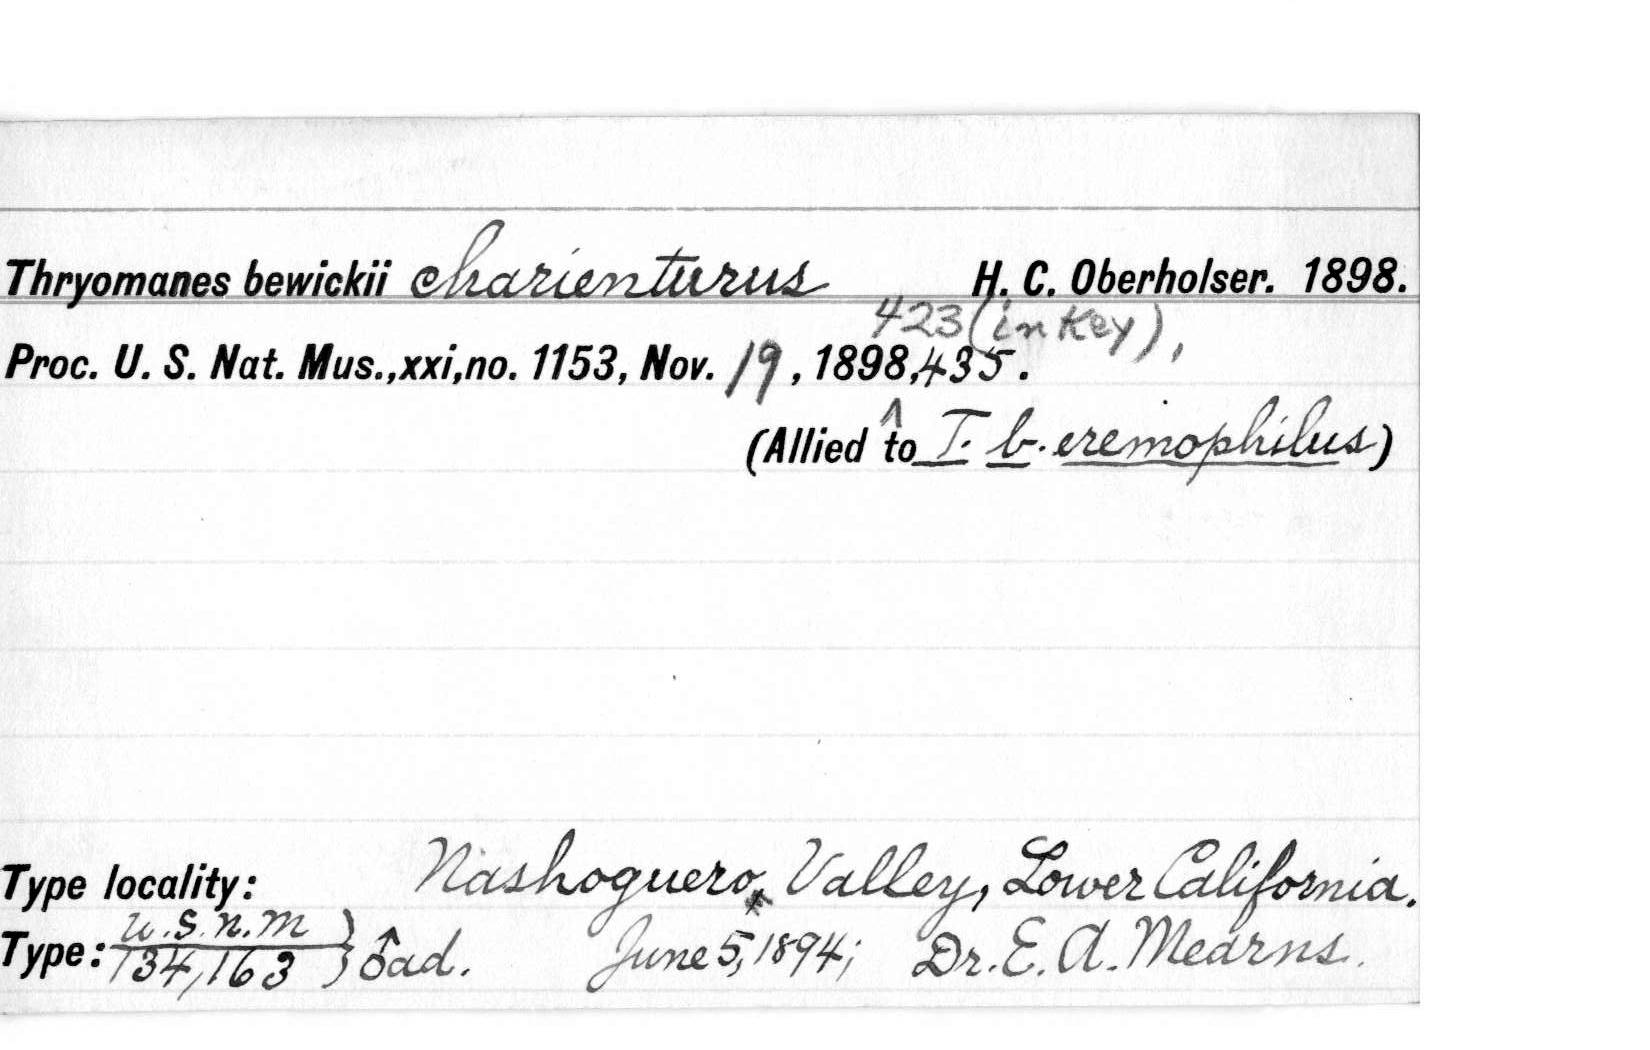 Thryomanes bewickii charienturus H. C. Oberholser. 1898.
423 (in Key),
Proc. U. S. Nat. Mus.,xxi,no. 1153, Nov. 19, 1898,435.
^
(Allied to T. b. eremophilus)
Type locality: Nashoguero* Valley, Lower California.
Type: U.S.N.M 134,163 } ♂ad. June 5, 1894; Dr. E. A. Mearns.